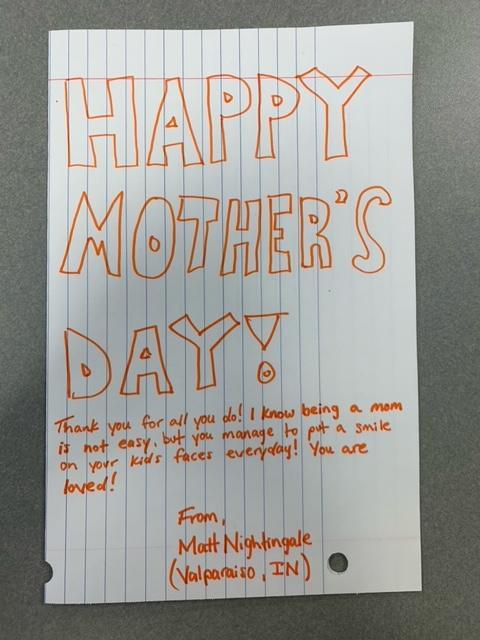 HAPPY
MOTHER'S
DAY!
Thank you for all you do! I know being a mom
is not easy, but you manage to put a smile
on your kids faces everyday! You are
loved!
From,
Matt Nightingale
(Valparaiso, IN)